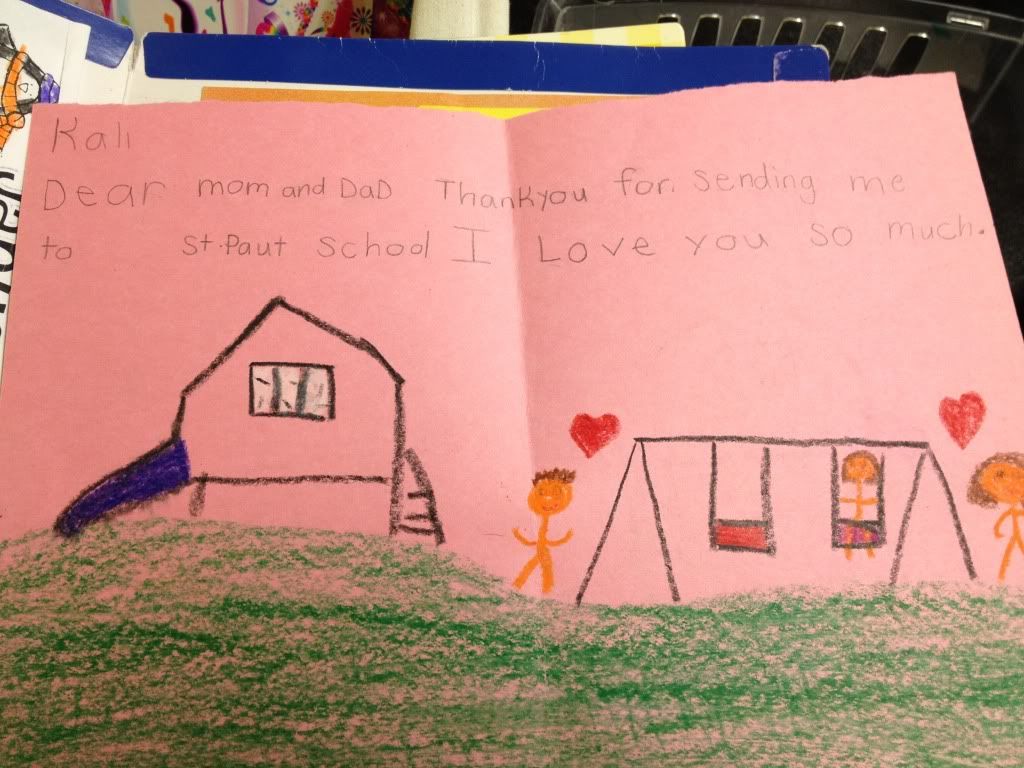 Kali
Dear mom and DaD Thankyou for sending me
to St. Paut School I Love you so much.